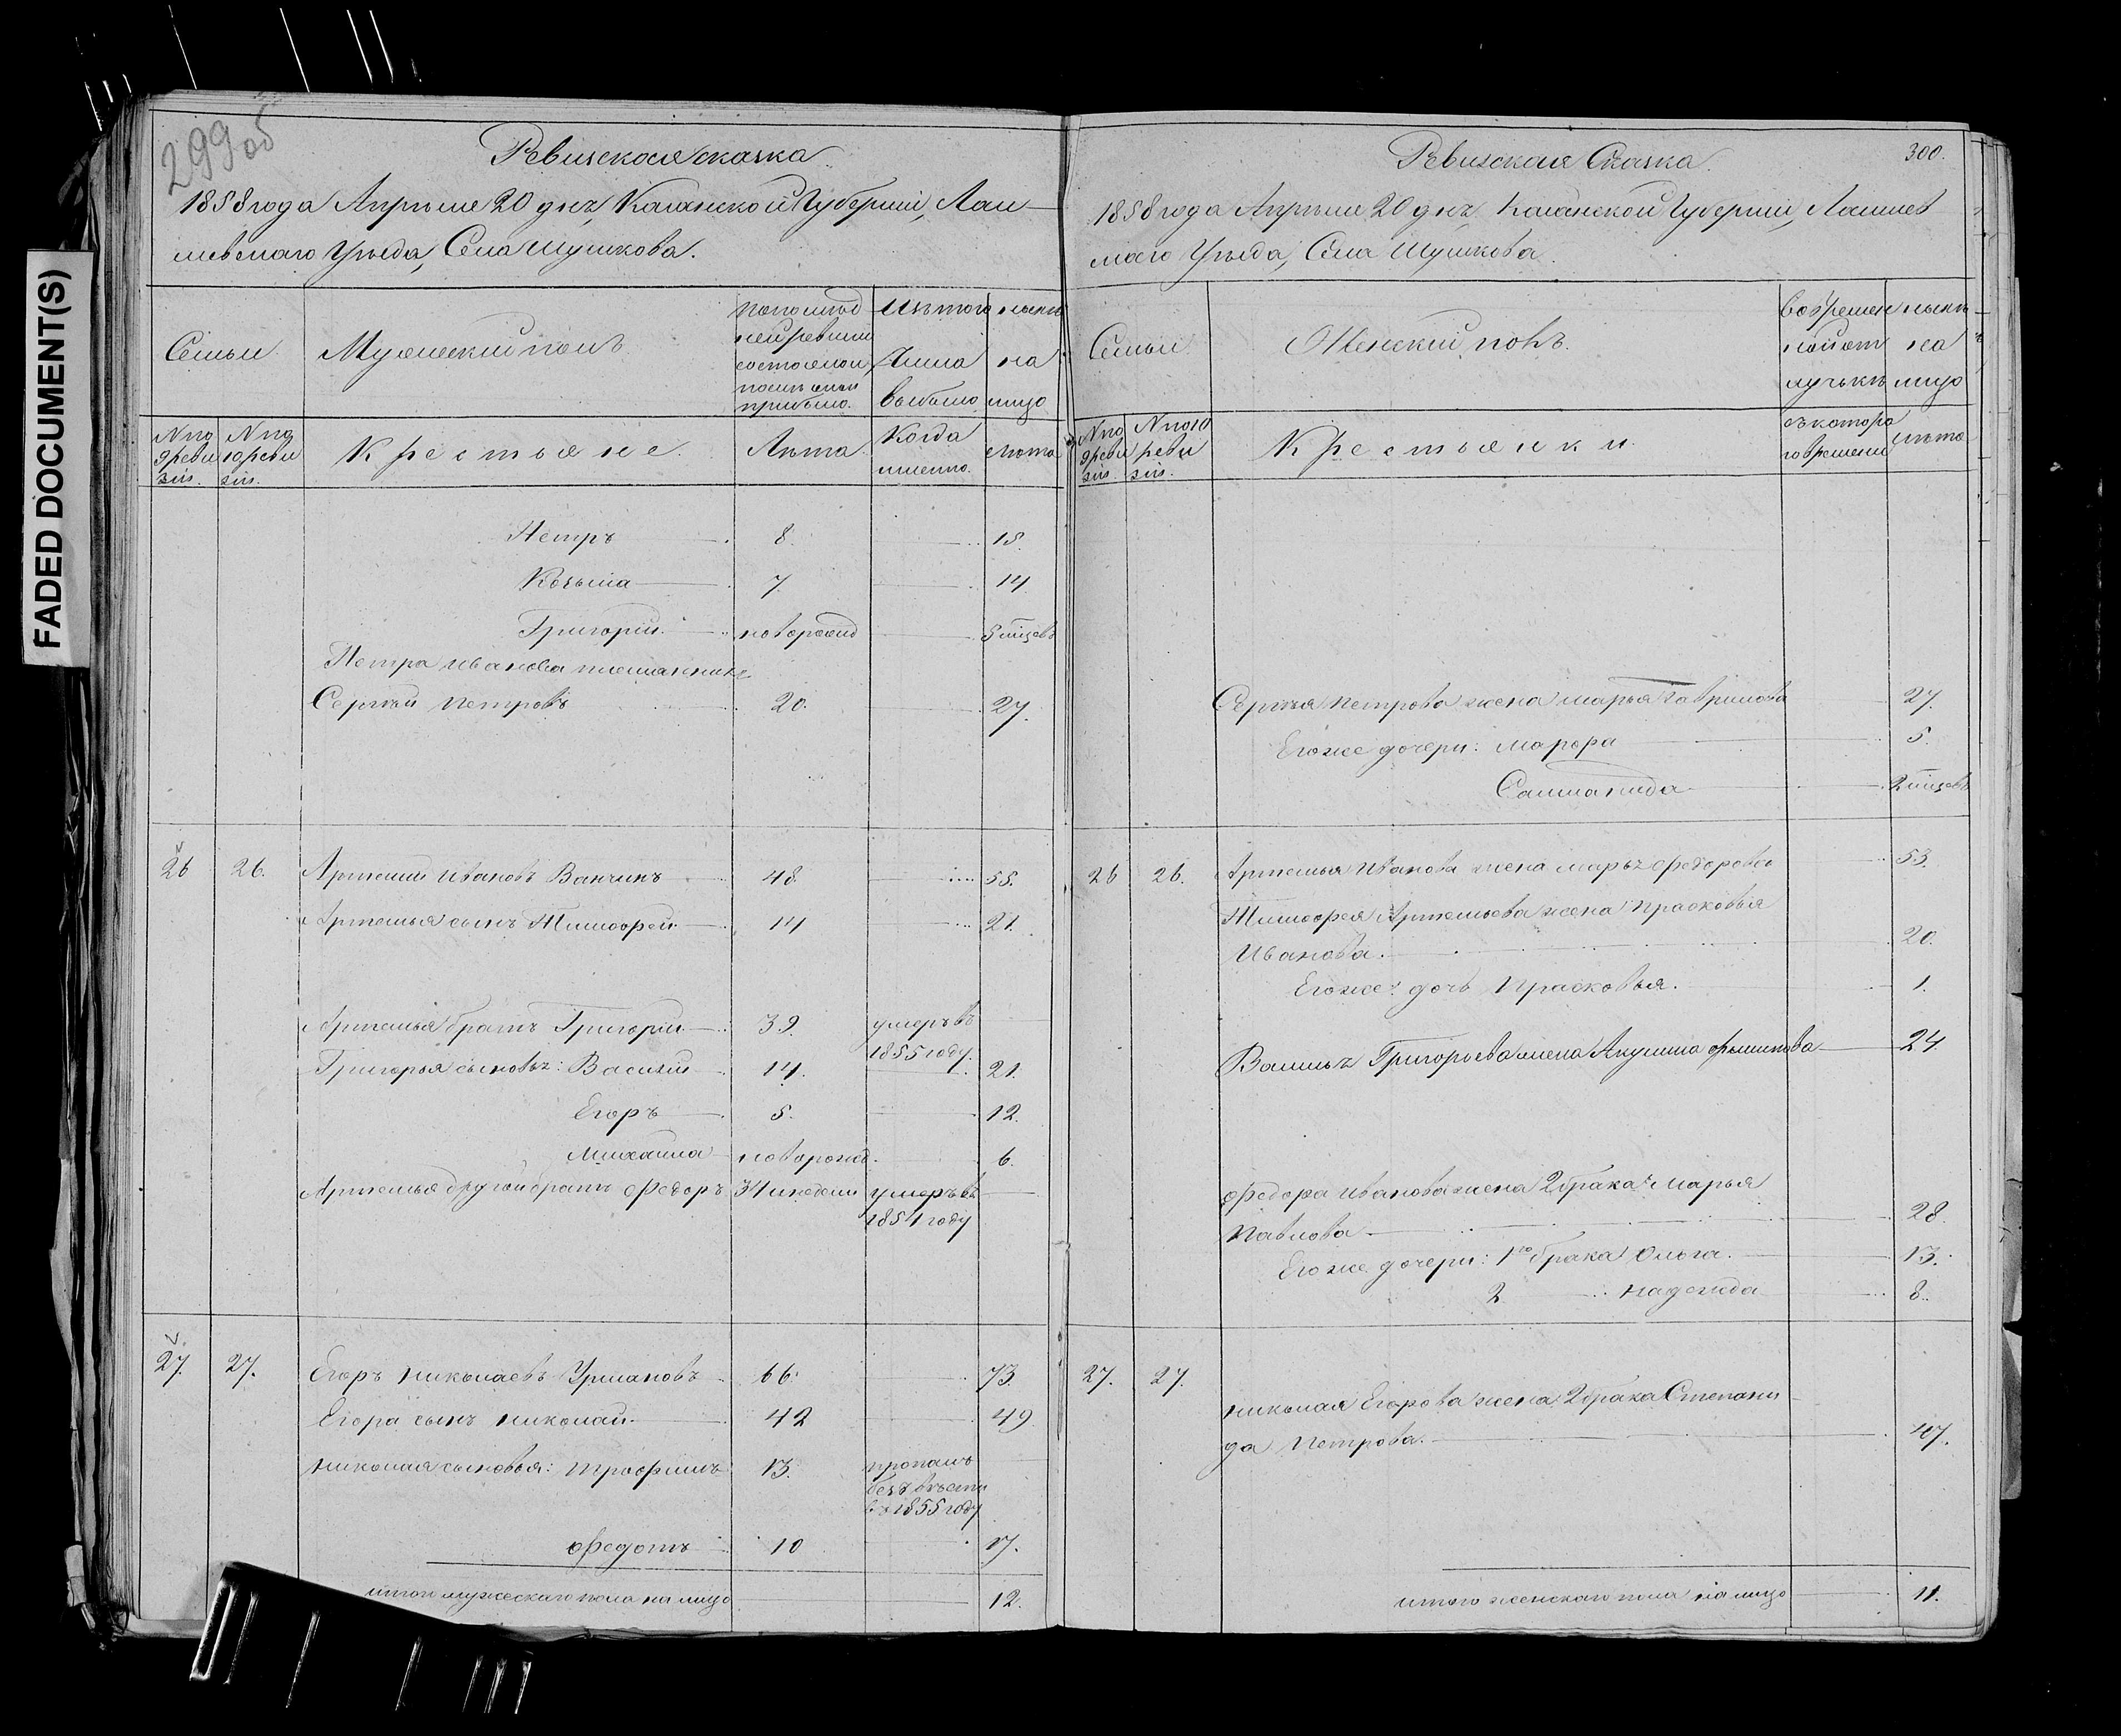 FADED DOCUMENT(S)
299об
Ревизская сказка
1858 года Апрѣля 20 дня, Казанской Губерніи, Лаи
шевскаго Уѣзда, Села Шушкова.
Семьи
Мужескій полъ
По послѣд
ней ревизіи
состояло и
послѣ оной
прибыло.
Изъ того
числа
выбыло
нынѣ
на
лицо
N по
9 реви
зіи.
N по
10 реви
зіи.
Крестьяне.
Лѣта.
Когда
именно.
лѣта
Петръ 8. 15.
Козьма 7. 14
Григорій. новорожд 5 мѣсцовъ
Петра Иванова племянникъ
Сергѣй Петровъ 20. 27.
26 26. Артемій Ивановъ Ванчинъ 48. 55.
Артемья сынъ Тимофей 14 21.
Артемья братъ Григорій 39. умеръ въ
1855 году.
Григорья сыновья: Василій 14. 21.
Егоръ 5. 12.
Михаила новорожд. 6.
Артемья другой братъ Федоръ 34 недели умеръ въ
1854 году
27. 27. Егоръ Николаевъ Урмановъ 66. 73.
Егора сынъ Николай 42 49.
Николая сыновья: Трофимъ 13. пропалъ
безъ вѣсти
въ 1855 году
Федотъ 10 17.
итого мужескаго пола на лицо 12.
Ревизская Сказка.
300.
1858 года Апрѣля 20 дня, Казанской Губерніи, Лаишев
скаго Уѣзда, Села Шушкова.
Семьи
Женскій полъ.
Во времен
ной от
лучькѣ
нынѣ
на
лицо
N по
9 реви
зіи.
N по 10
реви
зіи.
Крестьянки.
съ котора
го времени
лѣта
Сергѣя Петрова жена Марья Гаврилова 27.
Его же дочери: Марфа 5.
Саламанида 2 мѣсцовъ
26 26. Артемья Иванова жена Марья Федорова 53.
Тимофея Артемьева жена Прасковья
Иванова. 20.
Его же: дочь Прасковья. 1.
Василья Григорьева жена Акулина Филипова 24.
Федора Иванова жена 2 брака Марья
Павлова 28.
Его же дочери: 1го брака Ольга. 13.
2 Надежда 8.
27. 27. Николая Егорова жена 2 брака Степани
да Петрова. 47.
итого женскаго пола на лицо 11.